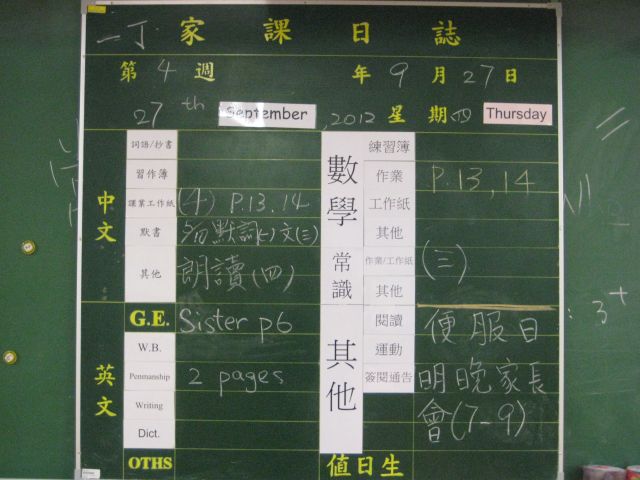 二丁 家課日誌
第 4 週 年 9 月 27 日
27th September, 2012 星期四 Thursday
中文
詞語/抄書
習作簿
課業工作紙 (4) P.13.14
默書 默詞(一)文(三)
其他 朗讀(四)
英文
G.E. Sister p6
W.B.
Penmanship 2 pages
Writing
Dict.
OTHS
數學
練習簿
作業 P.13,14
工作紙
其他
常識
作業/工作紙 (三)
其他
其他
閱讀 便服日
運動
簽閱通告 明晚家長
會(7-9)
值日生
3+